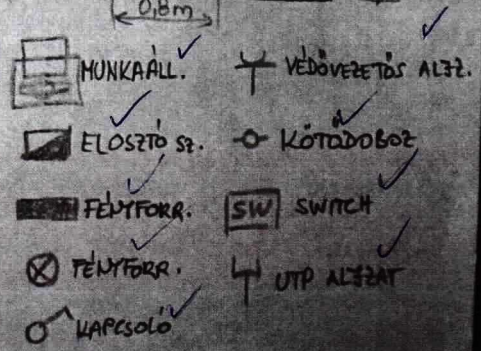 0,8m
MUNKAÁLL.
ELOSZTÓ SZ.
FÉNYFORR.
FÉNYFORR.
KAPCSOLÓ
VÉDŐVEZETŐS ALJZ.
KÖTŐDOBOZ
SW SWITCH
UTP ALJZAT